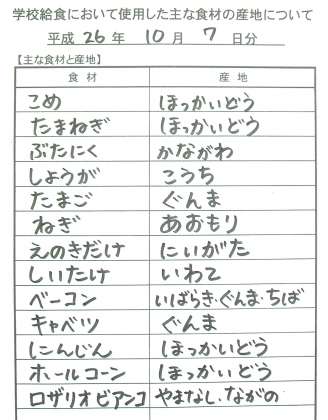 学校給食において使用した主な食材の産地について
平成 26 年 10 月 7 日分
【主な食材と産地】
食材 産地
こめ ほっかいどう
たまねぎ ほっかいどう
ぶたにく かながわ
しょうが こうち
たまご ぐんま
ねぎ あおもり
えのきだけ にいがた
しいたけ いわて
ベーコン いばらき・ぐんま・ちば
キャベツ ぐんま
にんじん ほっかいどう
ホールコーン ほっかいどう
ロザリオビアンコ やまなし、ながの